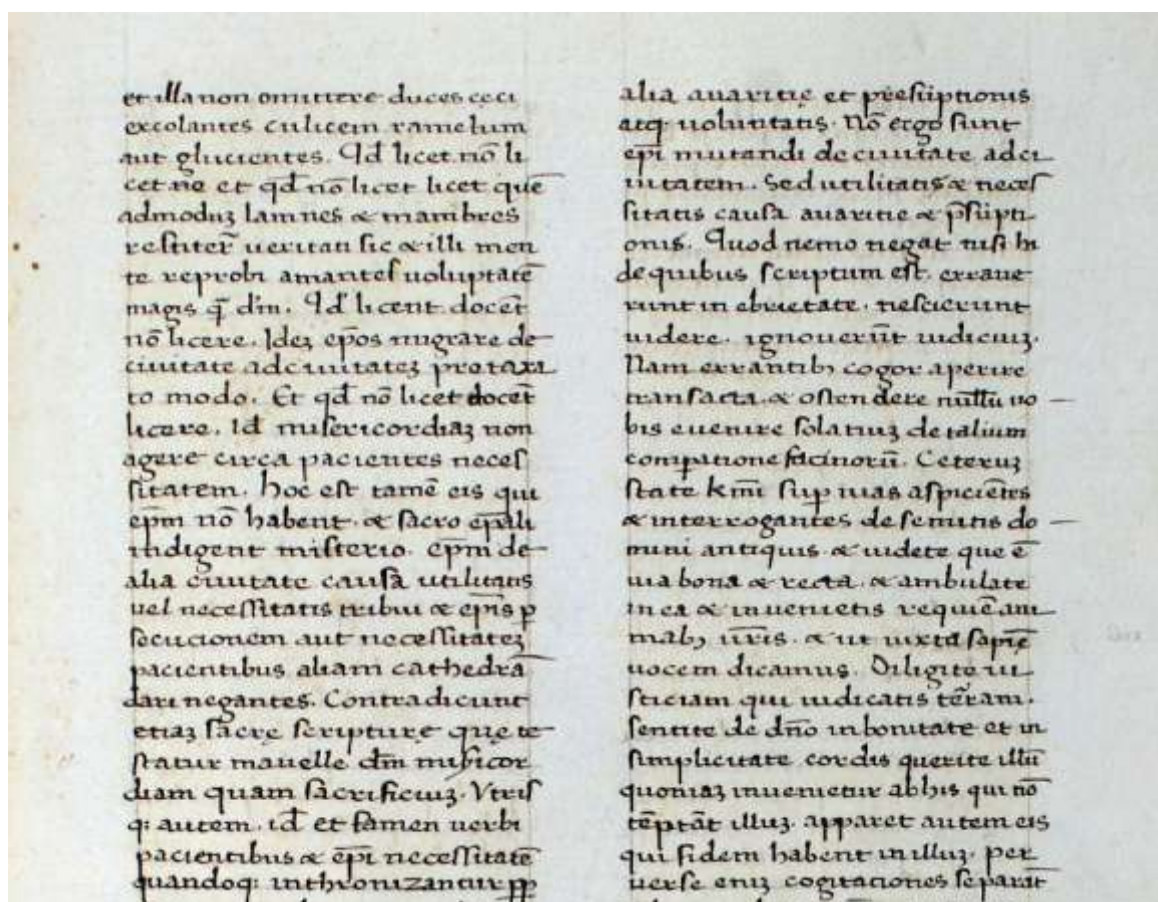 et illa non omittere duces cęci
excolantes culicem camelum
aut glucientes. Qd licet nō li
cet ne et qd nō licet licet quē
admoduʒ Iamnes & mambres
restiter̄ ueritati sic & illi men
te reprobi amantes uoluptatē
magis q̄ dm̄. Id licent docēt
nō licere. Ideʒ ep̄os migrare de
ciuitate ad ciuitateʒ pretaxa
to modo. Et qd nō licet docēt
licere. Id misericordiaʒ non
agere circa pacientes neces
sitatem. hoc est tamē eis qui
ep̄m nō habent. & sacro ep̄ali
indigent misterio. ep̄m de
alia ciuitate causa utilitatis
uel necessitatis tribui & ep̄is ꝑ
secucionem aut necessitateʒ
pacientibus aliam cathedrā
dari negantes. Contradicunt
etiaʒ sacrę scripturę quę te
statur mauelle dm̄ misicor
diam quam sacrificiuʒ. Vtris
q: autem. id et famen uerbi
pacientibus & ep̄i necessitatē
quandoq: inthronizantur ꝓp
alia auaritię et presūptionis
atq: uoluntatis. Nō ergo sunt
ep̄i mutandi de ciuitate ad ci
uitatem. Sed utilitatis & neces
sitatis causa auaritie & p̄sūpti
onis. Quod nemo negat nisi hi
de quibus scriptum est. erraue
runt in ebrietate. nescierunt
uidere. ignouerūt iudiciuʒ.
Nam errantibʒ cogor aperire
transacta. & ostendere nullū uo
bis euenire solatiuʒ de talium
compatione facinorū. Ceteruʒ
state kmī sup uias aspiciētes
& interrogantes de semitis do
mini antiquis. & uidete que ē
uia bona & recta. & ambulate
in ea & inuenietis requiē ani
mabʒ ur̄is. & ut iuxta sapię
uocem dicamus. Diligite iu
sticiam qui iudicatis tēram.
sentite de dn̄o in bonitate et in
simplicitate cordis querite illū
quoniaʒ inuenietur ab his qui nō
tēptāt illuʒ. apparet autem eis
qui fidem habent in illuʒ. per
uerse eniʒ cogitaciones separāt